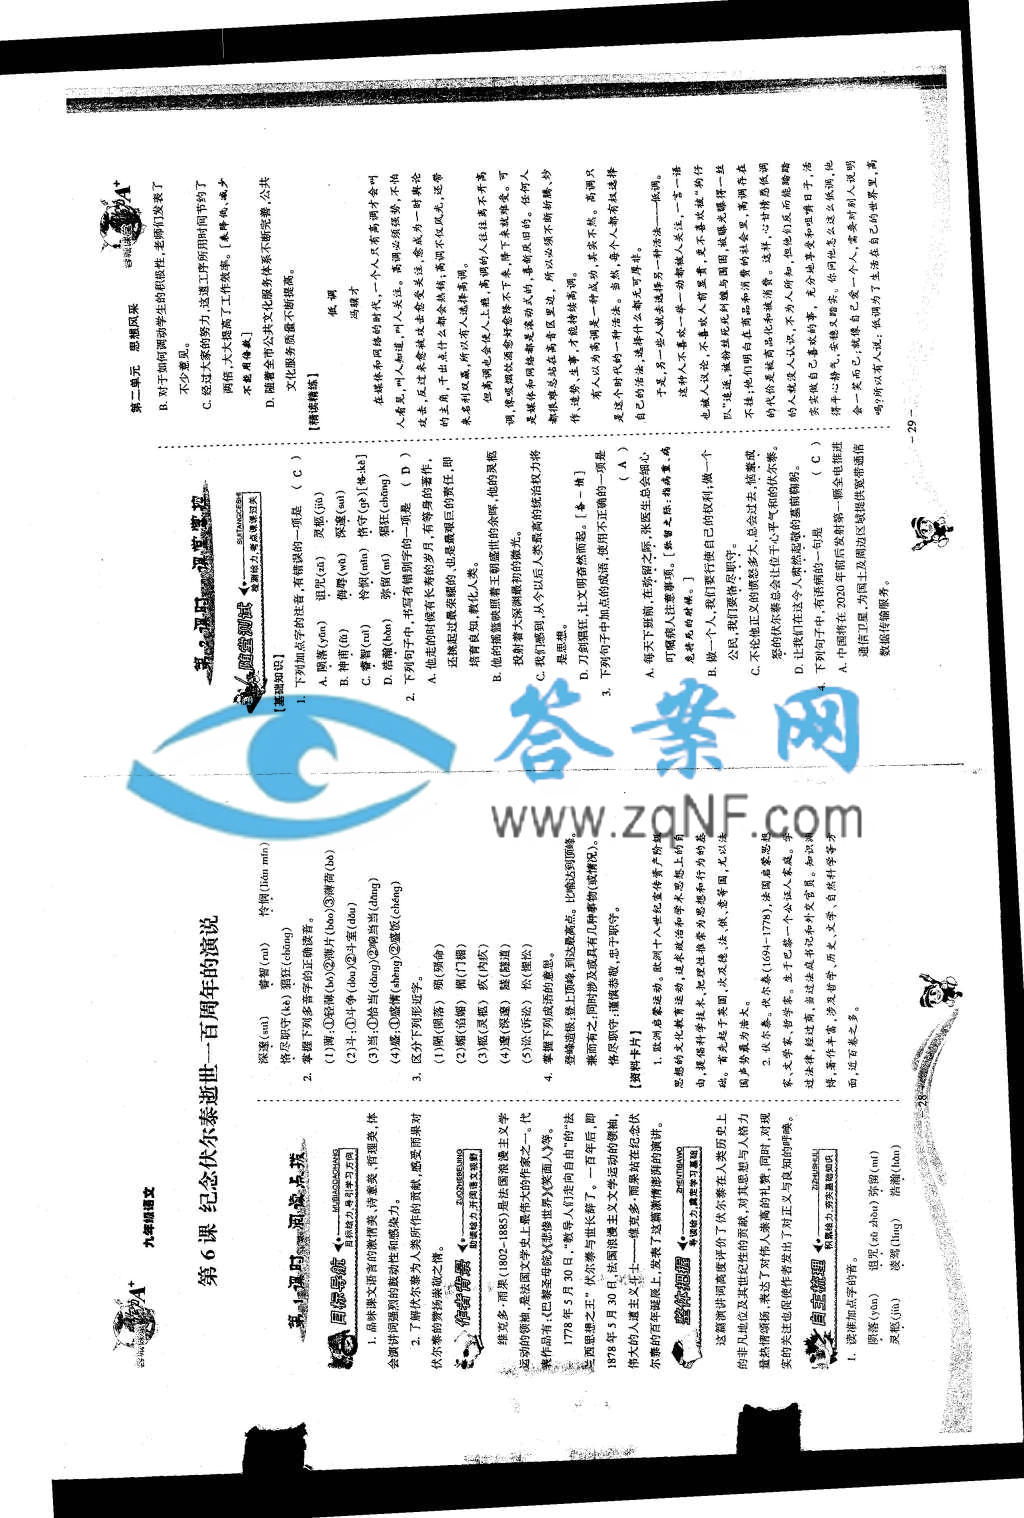 九年级语文
第 6 课 纪念伏尔泰逝世一百周年的演说
第 1 课时 阅读点拨
目标导航
MUBIAODAOHANG
目标给力,导引学习方向
1. 品味课文语言的激情美、诗意美、哲理美,体
会演讲词强烈的鼓动性和感染力。
2. 了解伏尔泰为人类所作的贡献,感受雨果对
伏尔泰的赞扬崇敬之情。
作者背景
ZUOZHEBEIJING
助读给力,开阔语文视野
维克多·雨果(1802-1885)是法国浪漫主义文学
运动的领袖,是法国文学史上最伟大的作家之一。代
表作品有:《巴黎圣母院》《悲惨世界》《笑面人》等。
1778 年 5 月 30 日,“教导人们走向自由”的“法
兰西思想之王”伏尔泰与世长辞了。一百年后,即
1878 年 5 月 30 日,法国浪漫主义文学运动的领袖,
伟大的人道主义斗士——维克多·雨果站在纪念伏
尔泰的百年诞辰上,发表了这篇激情澎湃的演讲。
整体把握
ZHENGTIBAWO
导读给力,奠定学习基础
这篇演讲词高度评价了伏尔泰在人类历史上
的非凡地位及其世纪性的贡献,对其思想与人格力
量热情颂扬,表达了对伟人崇高的礼赞,同时,对现
实的关注也促使作者发出了对正义与良知的呼唤。
自主梳理
ZIZHUSHULI
积累给力,夯实基础知识
1. 读准加点字的音。
陨落(yǔn) 诅咒(zǔ zhòu) 弥留(mí)
灵柩(jiù) 凌驾(líng) 浩瀚(hàn)
深邃(suì) 睿智(ruì) 怜悯(lián mǐn)
恪尽职守(kè) 猖狂(chāng)
2. 掌握下列多音字的正确读音。
(1)薄:①轻薄(bó)②薄片(báo)③薄荷(bò)
(2)斗:①斗争(dòu)②斗室(dǒu)
(3)当:①恰当(dàng)②响当当(dāng)
(4)盛:①盛情(shèng)②盛饭(chéng)
3. 区分下列形近字。
(1)陨(陨落) 殒(殒命)
(2)媚(谄媚) 楣(门楣)
(3)柩(灵柩) 疚(内疚)
(4)邃(深邃) 隧(隧道)
(5)讼(诉讼) 忪(惺忪)
4. 掌握下列成语的意思。
登峰造极:登上顶峰,到达最高点。比喻达到顶峰。
兼而有之:同时涉及或具有几种事物(或情况)。
恪尽职守:谨慎恭敬,忠于职守。
【资料卡片】
1. 欧洲启蒙运动。欧洲十八世纪宣传资产阶级
思想的文化教育运动,追求政治和学术思想上的自
由,提倡科学技术,把理性推崇为思想和行为的基
础。首先起于英国,次及德、法、俄、意等国,尤以法
国声势最为浩大。
2. 伏尔泰。伏尔泰(1694-1778),法国启蒙思想
家、文学家、哲学家。生于巴黎一个公证人家庭。学
过法律,经过商,当过法庭书记和外交官员。知识渊
博,著作丰富,涉及哲学、历史、文学、自然科学等方
面,近百卷之多。
- 28 -
第二单元 思想风采
第 2 课时 课堂掌控
随堂测试
SUITANGCESHI
检测给力,考点课课过关
【基础知识】
1. 下列加点字的注音,有错误的一项是 ( C )
A. 陨落(yǔn) 诅咒(zǔ) 灵柩(jiù)
B. 神甫(fǔ) 侮辱(wǔ) 深邃(suì)
C. 睿智(ruì) 怜悯(mǐn) 恪守(gè)[恪:kè]
D. 浩瀚(hàn) 弥留(mí) 猖狂(chāng)
2. 下列句子中,书写有错别字的一项是 ( D )
A. 他走的时候有长寿的岁月,有等身的著作,
还挑起过最荣耀的、也是最艰巨的责任,即
培育良知,教化人类。
B. 他的摇篮映照着王朝盛世的余晖,他的灵柩
投射着大深渊最初的微光。
C. 我们感到,从今以后人类最高的统治权力将
是思想。
D. 刀剑猖狂,让文明奋然而起。[奋—愤]
3. 下列句子中加点的成语,使用不正确的一项是
( A )
A. 每天下班前,在弥留之际,张医生总会细心
叮嘱病人注意事项。[弥留之际:指病重、病
危将死的时候。]
B. 做一个人,我们要行使自己的权利;做一个
公民,我们要恪尽职守。
C. 不论他正义的愤怒多大,总会过去,恼羞成
怒的伏尔泰总会让位于心平气和的伏尔泰。
D. 让我们在这令人肃然起敬的墓前鞠躬。
4. 下列句子中,有语病的一句是 ( C )
A. 中国将在 2020 年前后发射第一颗全电推进
通信卫星,为国土及周边区域提供宽带通信
数据传输服务。
B. 对于如何调动学生的积极性,老师们发表了
不少意见。
C. 经过大家的努力,这道工序所用时间节约了
两倍,大大提高了工作效率。[表降低、减少
不能用倍数]
D. 随着全市公共文化服务体系不断完善,公共
文化服务质量不断提高。
【精读精练】
低 调
冯骥才
在媒体和网络的时代,一个人只有高调才会叫
人看见,叫人知道,叫人关注。高调必须强势,不怕
攻击,反过来愈被攻击愈受关注,愈成为一时舆论
的主角,干出点什么都会热销;高调不仅风光,还带
来名利双赢,所以有人选择高调。
但高调也会使人上瘾,高调的人往往离不开高
调,像吸烟饮酒愈好愈降不下来,降下来就难受。可
是媒体和网络都是滚动式的,喜新厌旧的。任何人
都很难总站在高音区里边,所以必须不断折腾、炒
作、造势、生事,才能持续高调。
有人以为高调是一种成功,其实不然。高调只
是这个时代的一种活法。当然,每个人都有权选择
自己的活法,选择什么都无可厚非。
于是,另一些人就去选择另一种活法——低调。
这种人不喜欢一举一动都被人关注,一言一语
也被人议论,不喜欢人前显贵,更不喜欢被“狗仔
队”追逐,被粉丝死死纠缠与围困,被曝光曝得一丝
不挂;他们明白在商品和消费的社会里,高调存在
的代价是被商品化和被消费。这样,心甘情愿低调
的人就没人认识,不为人所知,但他们反而能踏踏
实实做自己喜欢的事,充分地享受和咀嚼日子,活
得平心静气,安稳又踏实。你问他怎么这么低调,他
会一笑而已;就像自己爱一个人,需要对别人说明
吗?所以有人说,低调为了生活在自己的世界里,高
- 29 -
答案网
www.zqNF.com